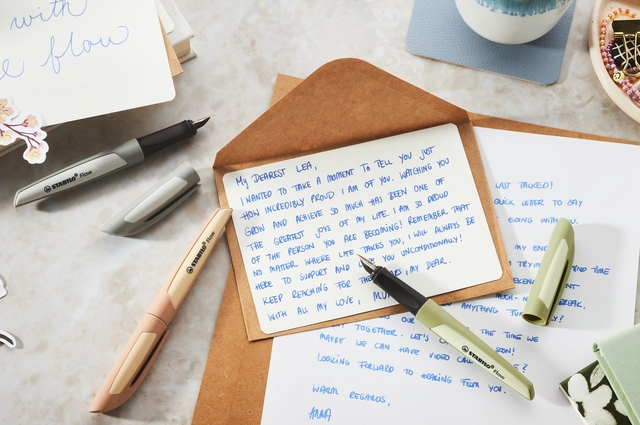 with
e flow
STABILO flow
STABILO flow
My DEAREST LEA,
I WANTED TO TAKE A MOMENT TO TELL YOU JUST
HOW INCREDIBLY PROUD I AM OF YOU. WATCHING YOU
GROW AND ACHIEVE SO MUCH HAS BEEN ONE OF
THE GREATEST JOYS OF MY LIFE. I AM SO PROUD
OF THE PERSON YOU ARE BECOMING! REMEMBER THAT
NO MATTER WHERE LIFE TAKES YOU, I WILL ALWAYS BE
HERE TO SUPPORT AND LOVE YOU UNCONDITIONALLY!
KEEP REACHING FOR THE STARS, MY DEAR.
WITH ALL MY LOVE, MUM
STABILO flow
LAST TALKED!
QUICK LETTER TO SAY
GOING WITH YOU.
MY
TIME
BREAK.
OUR
TOGETHER. LET'S THE TIME WE
MAYBE WE CAN HAVE VIDEO CALL SOON!
LOOKING FORWARD TO HEARING FROM YOU.
WARM REGARDS,
ANNA